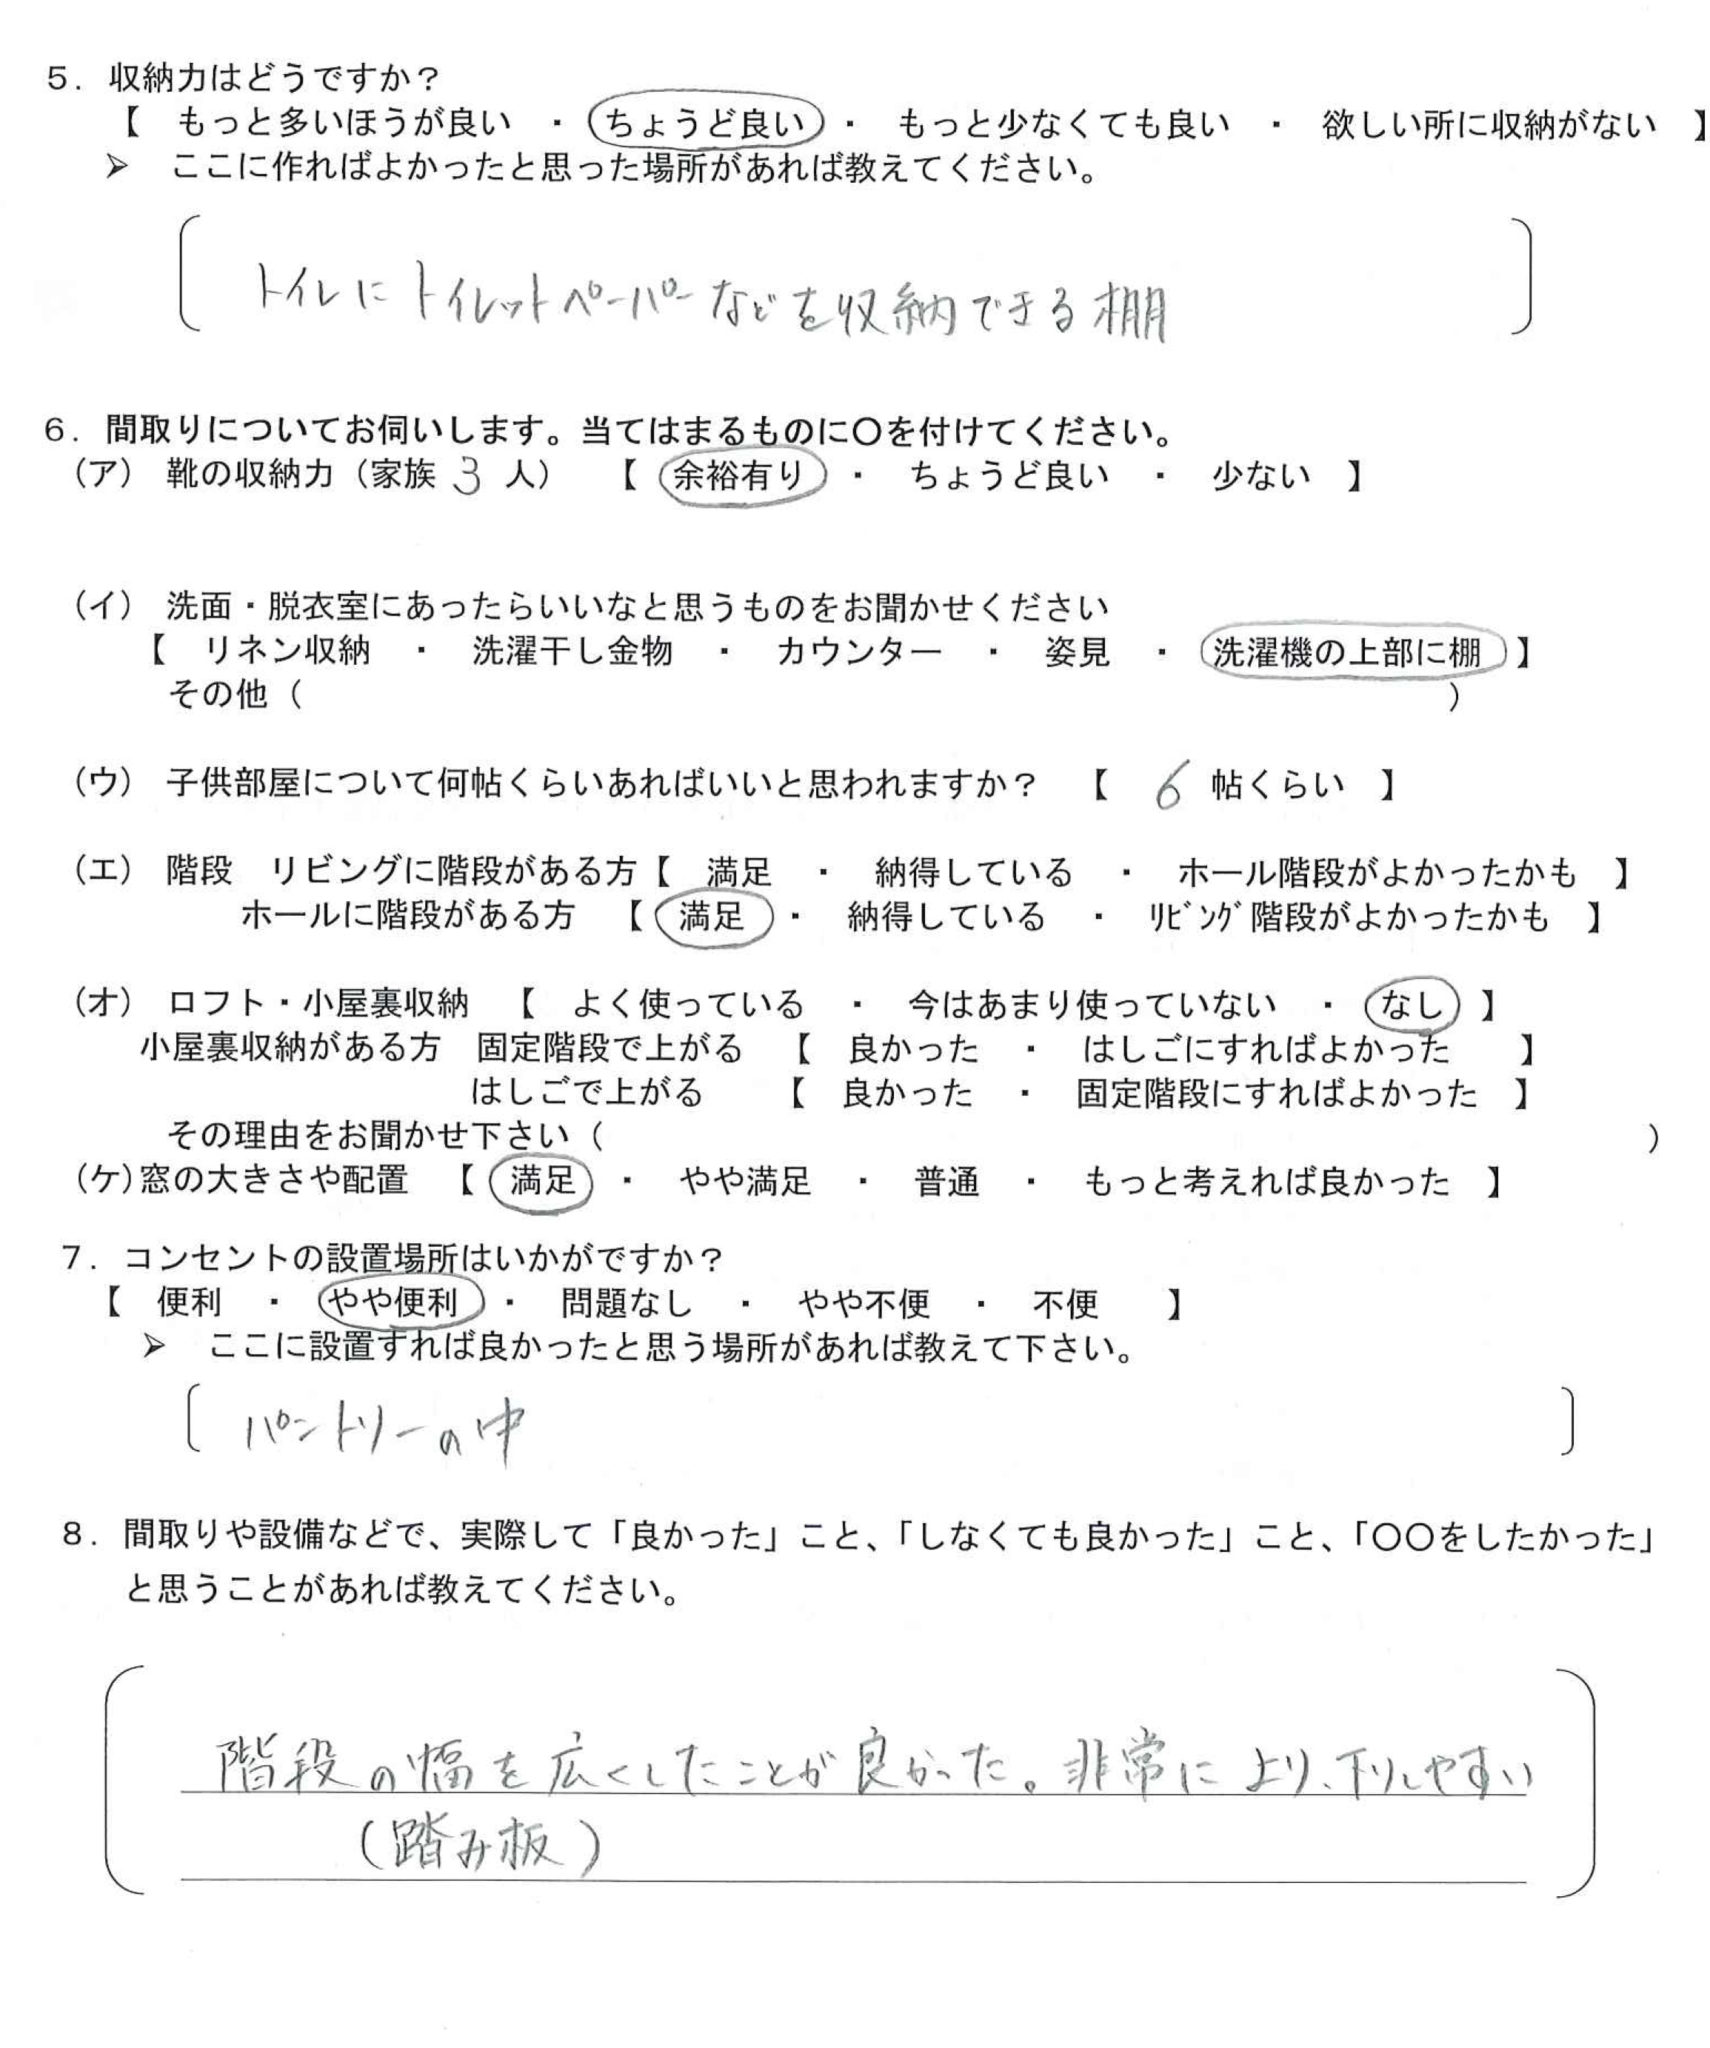 ５．収納力はどうですか？
【　もっと多いほうが良い　・　ちょうど良い　・　もっと少なくても良い　・　欲しい所に収納がない　】
➢　ここに作ればよかったと思った場所があれば教えてください。
トイレにトイレットペーパーなどを収納できる棚
６．間取りについてお伺いします。当てはまるものに〇を付けてください。
（ア）　靴の収納力（家族 3 人）　【　余裕有り　・　ちょうど良い　・　少ない　】
（イ）　洗面・脱衣室にあったらいいなと思うものをお聞かせください
【　リネン収納　・　洗濯干し金物　・　カウンター　・　姿見　・　洗濯機の上部に棚　】
その他（　　　　　）
（ウ）　子供部屋について何帖くらいあればいいと思われますか？　【　6　帖くらい　】
（エ）　階段　リビングに階段がある方【　満足　・　納得している　・　ホール階段がよかったかも　】
ホールに階段がある方　【　満足　・　納得している　・　ﾘﾋﾞﾝｸﾞ階段がよかったかも　】
（オ）　ロフト・小屋裏収納　【　よく使っている　・　今はあまり使っていない　・　なし　】
小屋裏収納がある方　固定階段で上がる　【　良かった　・　はしごにすればよかった　】
はしごで上がる　【　良かった　・　固定階段にすればよかった　】
その理由をお聞かせ下さい（　　　　　）
（ケ）窓の大きさや配置　【　満足　・　やや満足　・　普通　・　もっと考えれば良かった　】
７．コンセントの設置場所はいかがですか？
【　便利　・　やや便利　・　問題なし　・　やや不便　・　不便　】
➢　ここに設置すれば良かったと思う場所があれば教えて下さい。
パントリーの中
８．間取りや設備などで、実際して「良かった」こと、「しなくても良かった」こと、「〇〇をしたかった」
と思うことがあれば教えてください。
階段の幅を広くしたことが良かった。非常に より、下りしやすい
（踏み板）